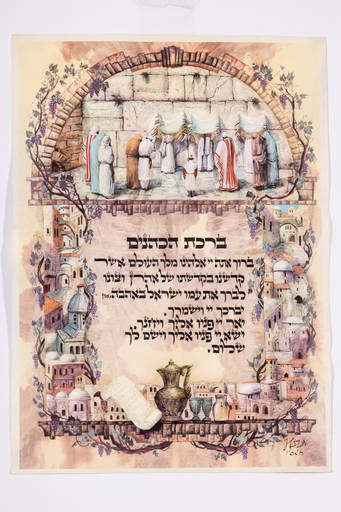 ברכת הכהנים
ברוך אתה יי אלהינו מלך העולם אשר
קדשנו בקדשתו של אהרן וצונו
לברך את עמו ישראל באהבה.
יברכך יי וישמרך.
יאר יי פניו אליך ויחנך.
ישא יי פניו אליך וישם לך
שלום.